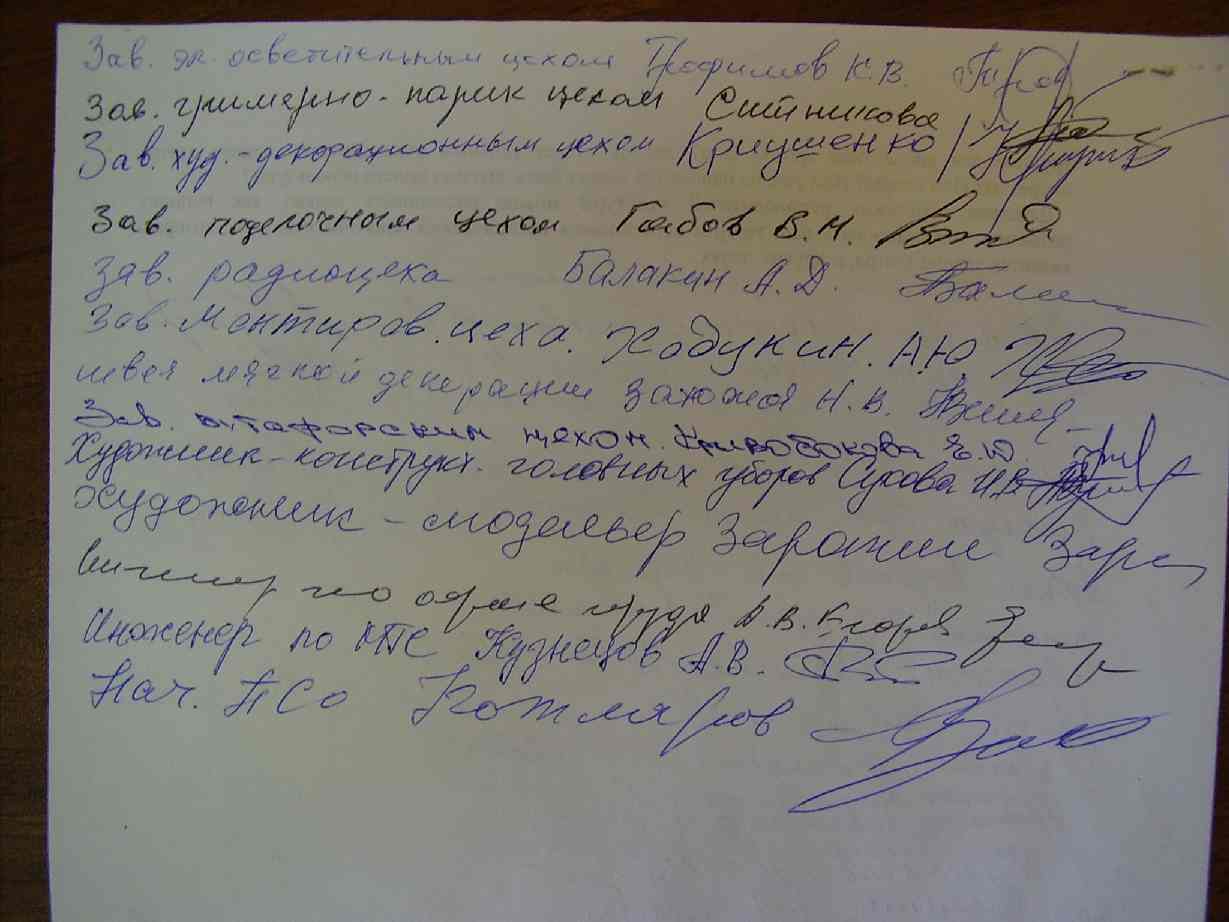 Зав. эл. осветительным цехом Трофимов К.В.
Зав. гримерно-парик цехом Ситникова
Зав. худ.-декорационным цехом Криушенко
Зав. поделочным цехом Габов В.Н.
Зав. радиоцеха Балакин А.Д.
Зав. Монтиров. цеха. Ходукин. А.Ю
швея мягкой декорации Н.В.
Зав. бутафорским цехом. Кривобокова Е.Ю.
Художник-конструкт. головных уборов Сухова
Художник-модельер
по охране труда
Инженер по МТС Кузнецов А.В.
Нач. ПСО Котляров